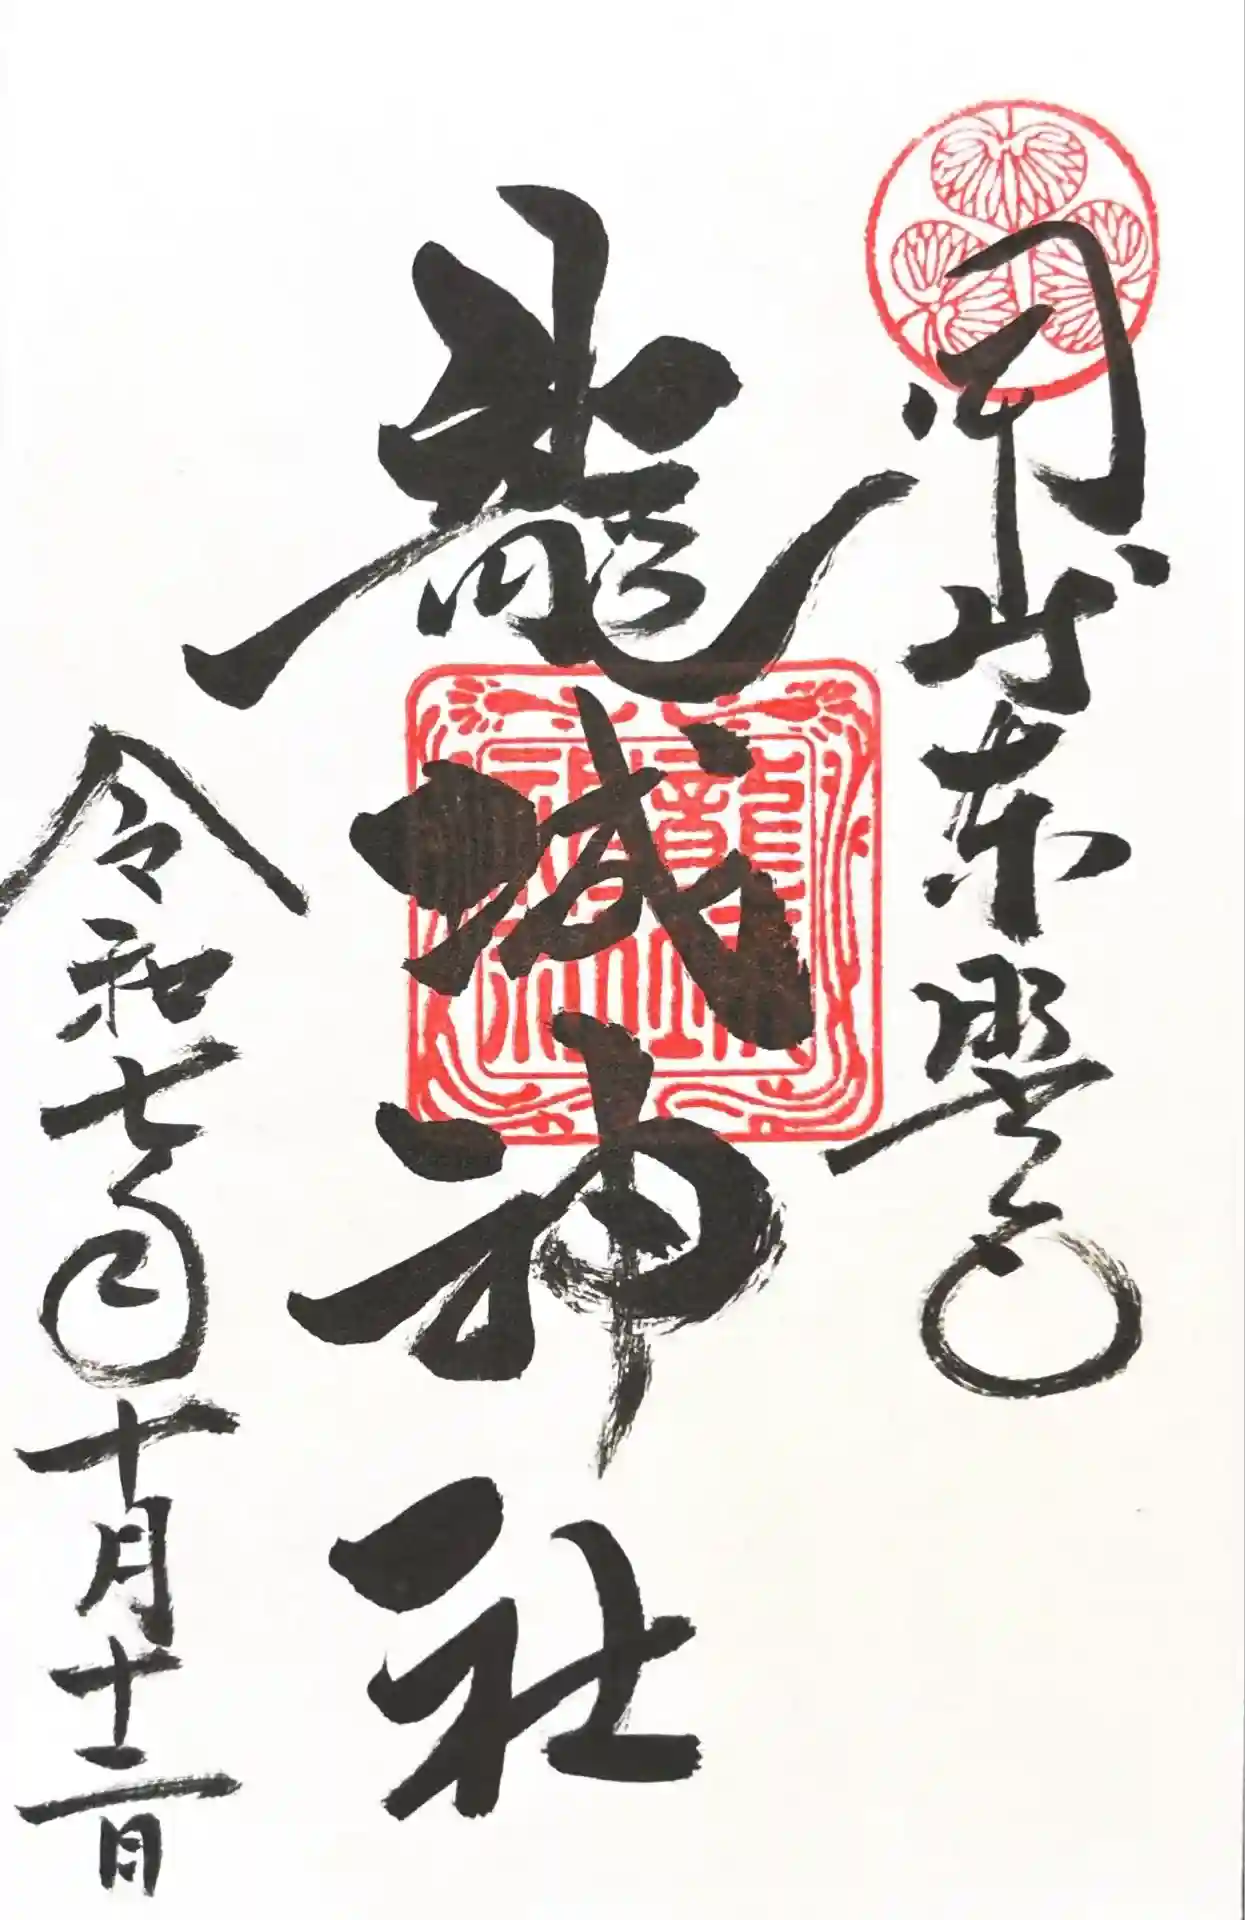 岡崎東照宮
龍城神社
龍城
神社
令和七年十月十二日